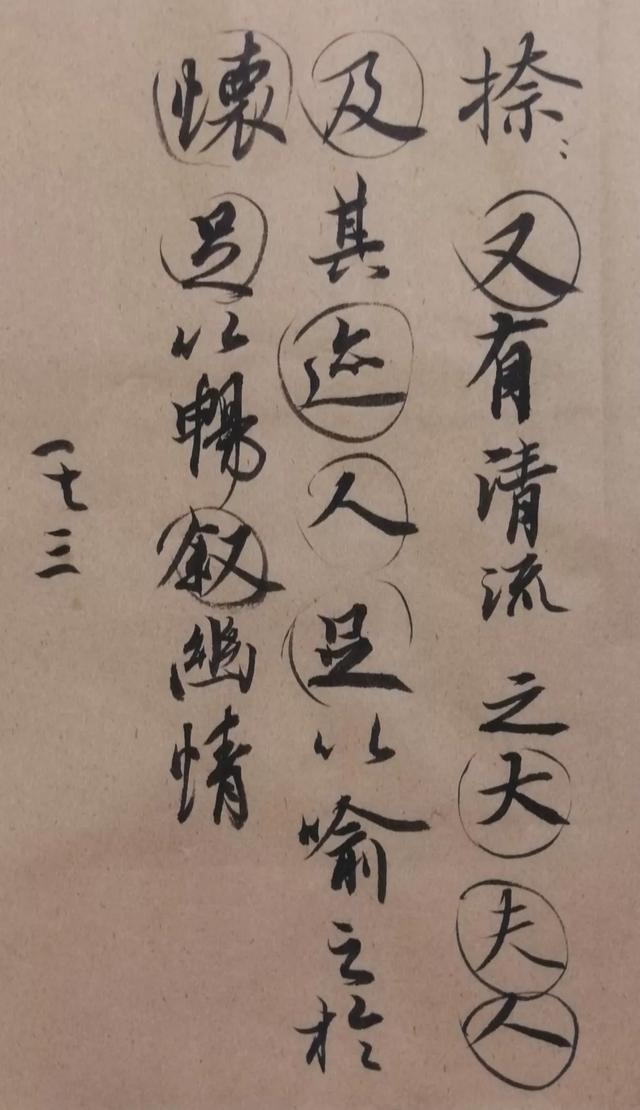 捺：又有清流之大夫人
及其迹人足以喻之於
懷足以暢叙幽情
一七三